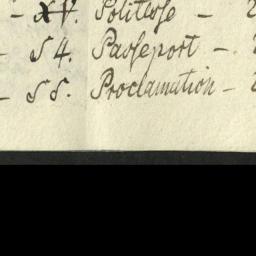 - XV. Politesse -
- 54. Passeport -
- 55. Proclamation -